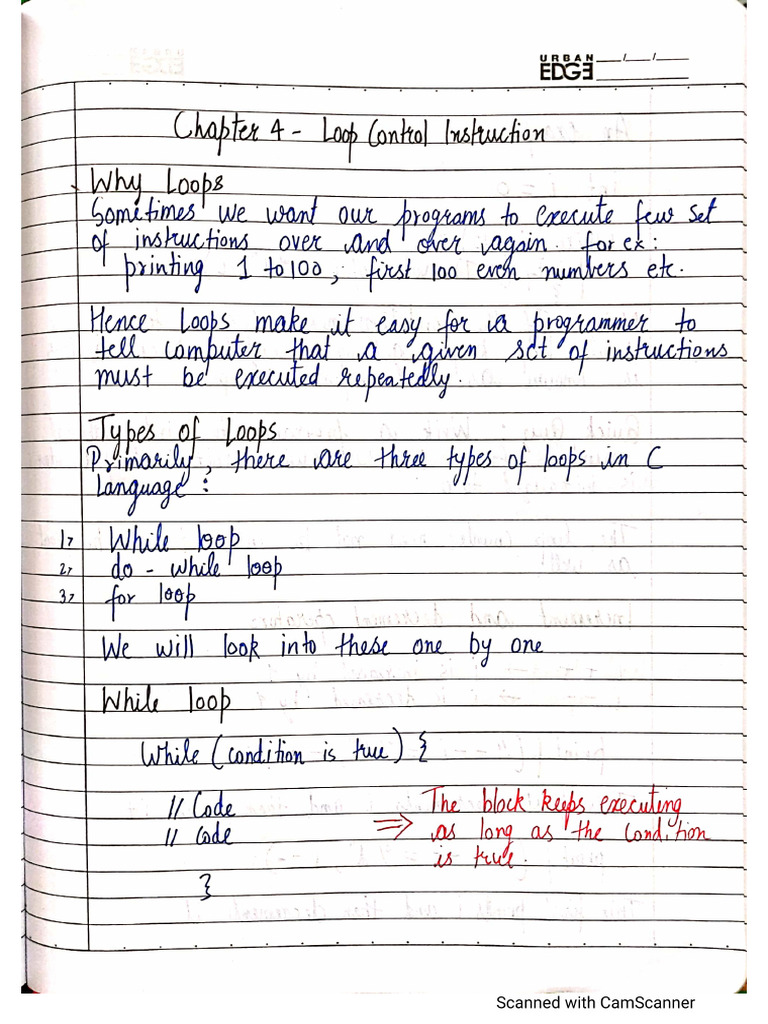 URBAN
EDGE
Chapter 4 - Loop Control Instruction
Why Loops
Sometimes we want our programs to execute few set
of instructions over and over again. for ex:
printing 1 to 100, first 100 even numbers etc.
Hence Loops make it easy for a programmer to
tell computer that a given set of instructions
must be executed repeatedly.
Types of Loops
Primarily, there are three types of loops in C
Language:
1> While loop
2> do - while loop
3> for loop
We will look into these one by one
While loop
While (condition is true) {
// Code
// Code
⇒ The block keeps executing
as long as the condition
is true.
}
Scanned with CamScanner